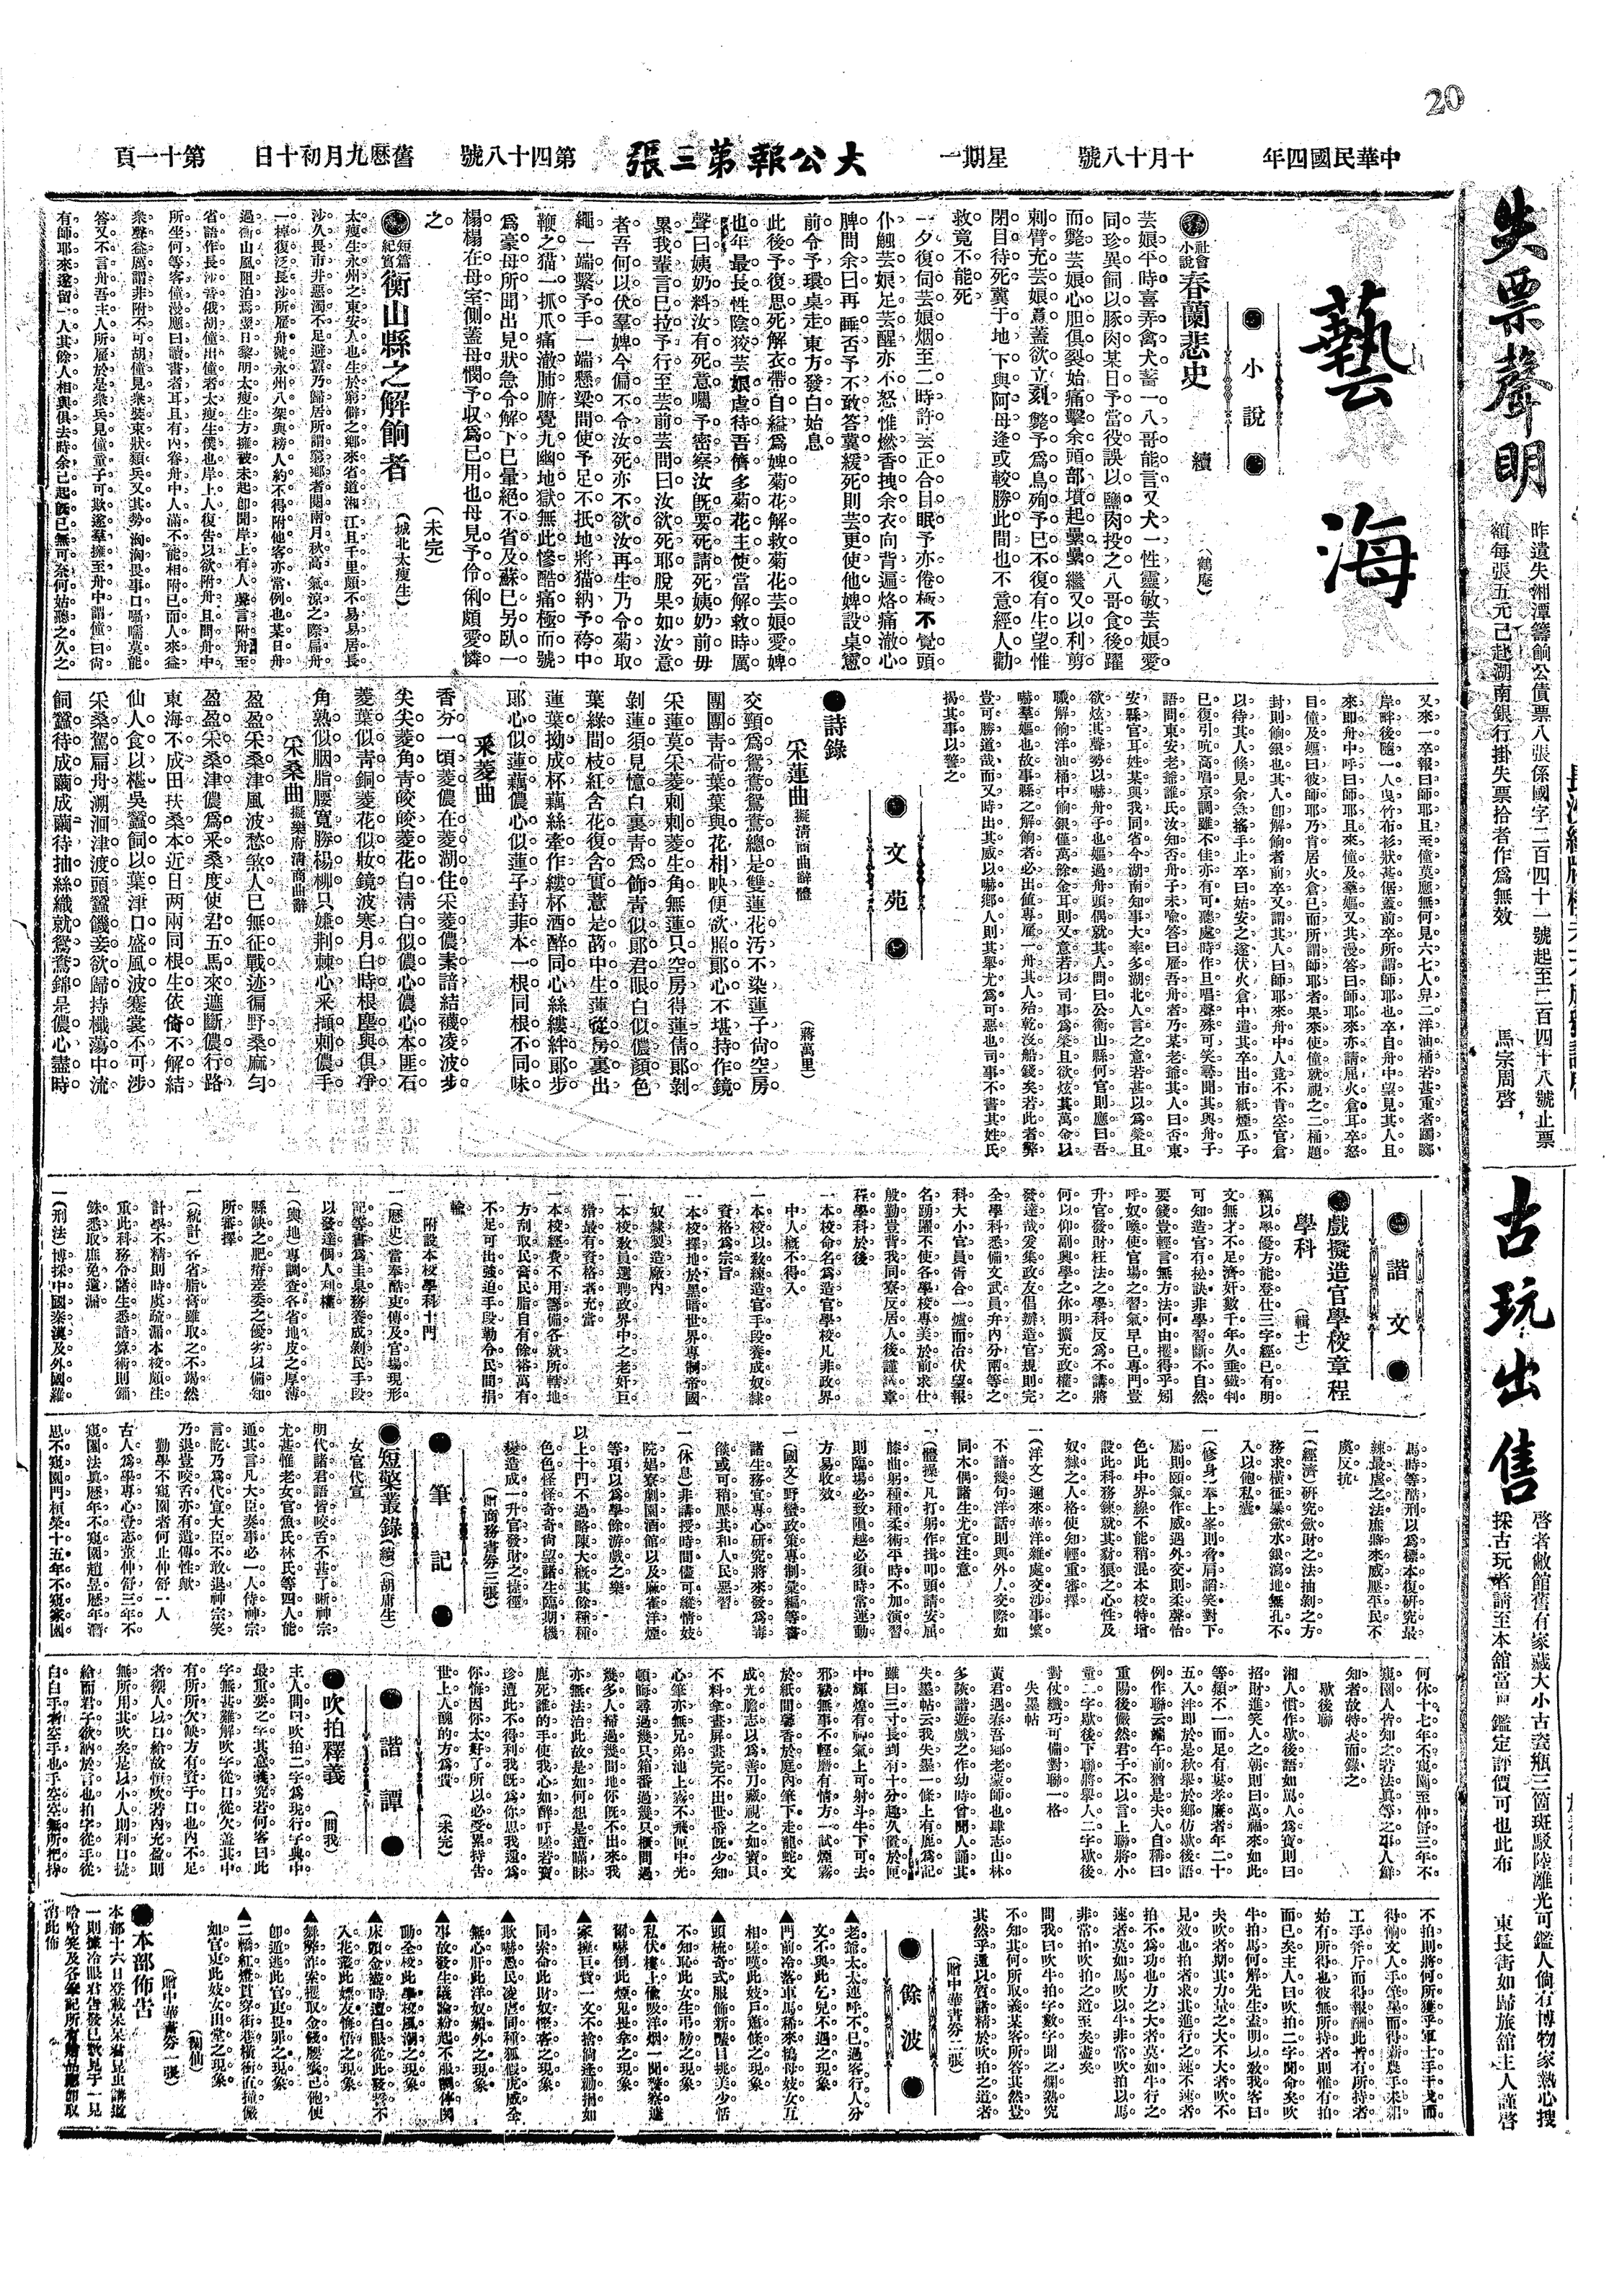 20
中華民國四年　十月十八號　星期一　大公報第三張　第四十八號　舊歷九月初十日　第十一頁
失票聲明
昨遺失湘潭籌餉公債票八張係國字二百四十一號起至二百四十八號止票
額每張五元已赴湖南銀行掛失票拾者作為無效　馬宗周啓
古玩出售
啓者敝館舊有家藏大小古瓷瓶三箇斑駁陸離光可鑑人倘有博物家熱心搜
採古玩者請至本舘當面鑑定評價可也此布　東長街如歸旅舘主人謹啓
藝海
小說
社會小說 春蘭悲史　續　（鶴庵）
芸娘平時喜弄禽犬蓄一八哥能言又犬一性靈敏芸娘愛
同珍異飼以豚肉某日予當役誤以鹽肉投之八哥食後躍
而斃芸娘心胆俱裂始痛擊余頭部墳起纍纍繼又以利剪
刺臂充芸娘意蓋欲立刻斃予為鳥殉予已不復有生望惟
閉目待死冀于地下與阿母逢或較勝此間也不意經人勸
救竟不能死
一夕復伺芸娘烟至二時許芸正合目眠予亦倦極不覺頭
仆觸芸娘足芸醒亦不怒惟燃香拽余衣向背遍烙痛澈心
脾問余曰再睡否予不敢答冀緩死則芸更使他婢設桌燈
前令予環桌走東方發白始息
此後予復思死解衣帶自縊為婢菊花解救菊花芸娘愛婢
也年最長性陰狡芸娘虐待吾儕多菊花主使當解救時厲
聲曰姨奶料汝有死意囑予密察汝既要死請死姨奶前毋
累我輩言已拉予行至芸前芸問曰汝欲死耶脫果如汝意
者吾何以伏羣婢今偏不令汝死亦不欲汝再生乃令菊取
繩一端繫予手一端懸梁間使予足不抵地將猫納予袴中
鞭之猫一抓爪痛澈肺腑覺九幽地獄無此慘酷痛極而號
為豪母所聞出見狀急令解下已暈絕不省及蘇已另臥一
榻榻在母室側蓋母憫予収為已用也母見予伶俐頗愛憐
之　（未完）
短篇紀實 衡山縣之解餉者　（城北太瘦生）
太瘦生永州之東安人也生於窮僻之鄉來省道湘江且千里頗不易易居長
沙久長市井惡濁不足避囂乃歸居所謂窮鄉者閱兩月秋高氣涼之際扁舟
一棹復泛長沙所雇舟號永州八架與榜人約不得附他客亦當例也某日舟
過衡山風阻泊焉翌日黎明太瘦生方擁被未起卽聞岸上有人聲言附舟至
省語作長沙音俄胡僮出僮者太瘦生僕也岸上人復告以欲附舟且問舟中
所坐何等客僮漫應曰讀書者耳且有內眷舟中人滿不能相附已而人來益
衆聲益厲謂非附不可胡僮見衆裝束狀類兵又其勢洶洶畏事口囁嚅莫能
答又不言舟吾主人所雇於是衆兵見僮童子可欺遂羣擁至舟中謂僮曰尙
有師耶來遂留一人其餘人相與俱去時余已起旣已無可奈何姑聽之久之
又來一卒報曰師耶且至僮莫應無何見六七人舁二洋油桶若甚重者躑躅
岸畔後隨一人曳竹布衫狀甚倨蓋前卒所謂師耶也卒自舟中望見其人且
來卽舟中呼曰師耶且來僮及藥嫗又共漫答曰師耶來亦請屈火倉耳卒怒
目僮及嫗曰彼師耶乃肯居火倉已而所謂師耶者果來使僮就視之二桶題
封則餉銀也其人卽解餉者前卒又謂其人曰師耶來舟中人竟不肯空官倉
以待其人倏見余急搖手止卒曰姑安之遂伏火倉中遣其卒出市紙煙瓜子
已復引吭高唱京調雖不佳亦有可聽處時作且唱聲殊可笑尋聞其與舟子
語問東安老爺誰氏汝知否舟子未喻答曰雇吾舟者乃某老爺其人曰否東
安縣官耳姓某與我同省今湖南知事大率多湖北人言之意若甚以為榮且
欲炫其聲勢以嚇舟子也嫗過舟頭偶就其人問曰公衡山縣何官則應曰吾
職解餉洋油桶中餉銀僅萬餘金耳則又意若以司事為榮且欲炫其萬金以
嚇羣嫗也故事縣之解餉者必出値專雇一舟其人殆乾沒船錢矣若此者弊
豈可勝道哉而又時出其威以嚇鄉人則其舉尤為可惡也司事不書其姓氏
揭其事以警之
文苑
詩錄
采蓮曲 擬淸商曲辭體　（蔣萬里）
交頸為鴛鴦鴛鴦總是雙蓮花汚不染蓮子尙空房
團團靑荷葉葉與花相映便欲照郞心不堪持作鏡
采蓮莫采菱刺刺菱生角無蓮只空房得蓮倩郞剝
剝蓮須見憶白裹靑為飾靑似郞君眼白似儂顏色
葉綠間枝紅含花復含實薏是葯中生蓮從房裏出
蓮葉拗成杯藕絲牽作縷杯酒醉同心絲縷絆郞步
郞心似蓮藕儂心似蓮子葑菲本一根同根不同味
采菱曲
香分一頃菱儂在菱湖住采菱儂素諳結襪凌波步
尖尖菱角靑皎皎菱花白淸白似儂心儂心本匪石
菱葉似靑銅菱花似妝鏡波寒月白時根塵與俱凈
角熟似胭脂腰寬勝楊柳只嫌荆棘心采擷刺儂手
采桑曲 擬樂府淸商曲辭
盈盈采桑津風波愁煞人已無征戰迹徧野桑麻勻
盈盈采桑津儂為采桑度使君五馬來遮斷儂行路
東海不成田扶桑本近日两兩同根生依倚不解結
仙人食以椹吳蠶飼以葉津口盛風波蹇裳不可涉
采桑駕扁舟溯洄津渡頭蠶饑妾欲歸持檝蕩中流
飼蠶待成繭成繭待抽絲絲織就鴛鴦錦是儂心盡時
諧文
戲擬造官學校章程
學科　（輯士）
竊以學優方能登仕三字經已有明
文無才不足濟奸數千年久垂鐵判
可知造官有秘訣非學習斷不自然
要錢豈輕言無方法何由攫得乎矧
呼奴喚使官場之習氣早已專門豈
升官發財枉法之學科反為不講將
何以仰副興學之休明擴充政權之
發達哉爰集政友倡辦造官規則完
全學科悉備文武員弁內分兩等之
科大小官員術合一爐而冶伏望報
名踴躍不使各學校專美於前求仕
殷勤豈肯我同寮反居人後謹議章
程學科於後
一本校命名為造官學校凡非政界
中人槪不得入
一本校以敎練造官手段養成奴隷
資格為宗旨
一本校擇地於黑暗世界專制帝國
奴隷製造廠內
一本校敎員選聘政界中之老奸巨
猾最有資格者充當
一本校經費不用籌備各就所轄地
方刮取民膏民脂自有餘裕萬有
不足可出強迫手段勒令民間捐
輸
附設本校學科十門
一（歷史）當奉酷吏傳及官場現形
記等書為圭臬務養成剝民手段
以發達個人利權
一（輿地）專調查各省地皮之厚薄
縣缺之肥瘠差委之優劣以備知
所審擇
一（統計）各省脂膏雖取之不竭然
計學不精則時虞疏漏本校頗注
重此科務令諸生悉諳算術則錙
銖悉取庶免遺漏
一（刑法）博採中國秦漢及外國羅
馬時等酷刑以為標本復研究最
辣最虐之法庶將來威壓平民不
虞反抗
一（經濟）研究歛財之法抽剝之方
務求橫征暴歛水銀瀉地無孔不
入以飽私囊
一（修身）奉上峯則脅肩諂笑對下
屬則頤氣作威遇外交則柔聲怡
色此中界線不能稍混本校特增
設此科務鍊就其豺狼之心性及
奴隷之人格使知輕重審擇
一（洋文）邇來華洋雜處交涉事繁
不諳幾句洋話則與外人交際如
同木偶諸生尤宜注意
一（體操）凡打躬作揖叩頭請安屈
膝曲躬種種柔術平時不加演習
則臨場必致隕越必須時常運動
方易收效
一（國文）野蠻政策專制藁編等書
諸生務宜專心研究將來發為毒
燄或可稍壓其和人民惡習
一（休息）非講授時間儘可縱情妓
院娼寮劇園酒館以及麻雀洋煙
等項以為學餘游戲之樂
以上十門不過略陳大槪其餘種種
色色怪怪奇奇尙望諸生臨期機
變造成一升官發財之捷徑
（贈商務書劵三張）
筆記
短檠叢錄（續）（胡庸生）
女官代宣
明代諸君語皆咬舌不甚了晰神宗
尤甚惟老女官魚氏林氏等四人能
通其言凡大臣奏事必一人侍神宗
言訖乃為代宣大臣不敢退神宗笑
乃退豈咬舌亦有遺傳性歟
勤學不窺園者何止仲舒一人
古人為學專心壹志董仲舒三年不
窺園法眞歷年不窺園趙昱歷年潛
思不窺園門桓榮十五年不窺家園
何休十七年不窺園至仲舒三年不
窺園人皆知之若法眞等之事人鮮
知者故特表而錄之
歇後聯
湘人慣作歇後語如罵人為寳則曰
招財進笑人之朝則曰萬福來如此
等類不一而足有某孝廉者年二十
五入泮卽於是秋舉於鄉彷歇後語
例作聯云端午前猶是夫人自稱曰
重陽後儼然君子不以言上聯將小
童二字歇後下聯將舉人二字歇後
對仗纖巧可備對聯一格
失墨帖
黃君遇春吾鄉老蒙師也肆志山林
多詼諧遊戲之作幼時曾聞人誦其
失墨帖云我失墨一條上有鹿為記
雖曰三寸長到有十分趣久置於匣
中輝煌有神氣上可射斗牛下可去
邪祓無事不輕磨有情方一試煙霧
於紙間馨香於庭內筆下走龍蛇文
成光膽志以為善刀藏視之如寶貝
不料拿畫屏畫完不出世昏旣少知
心筆亦無兄弟池上霧不飛匣中光
頓晦尋過幾只箱番過幾只櫃問過
幾多人掃過幾間地你旣不出來我
亦無法治此故是如何想是遭瞞昧
鹿死誰的手使我心如醉吁嗟若寶
珍遭此不得利我旣為你思我還為
你悔因你太好了所以必受累持告
世上人醜的方為貴　（未完）
諧譚
吹拍釋義　（問我）
主人問曰吹拍二字為現行字典中
最重要之字其意義究若何客曰此
字無甚難解吹字從口從欠蓋其中
有所所欠缺方有賓于口也內不足
者禦人以口給故恒吹若內充盈則
無所用其吹矣是以小人則利口捷
給而君子欲訥於言也拍字從手從
白白手者空手也手空空無所把持
不拍則將何所獲乎軍士手干戈而
得餉文人手筆墨而得薪農手未耜
工手斧斤而得報酬此皆有所持者
始有所得也彼無所持者則惟有拍
而已矣主人曰吹拍二字聞命矣吹
牛拍馬何解先生盍明以敎我客曰
夫吹者期其力量之大不大者吹不
見效也拍者求其進行之速不速者
拍不為功也力之大者莫如牛行之
速者莫如馬吹以牛非常吹拍以馬
非常拍吹拍之道至矣盡矣
問我曰吹牛拍字數字聞之爛熟究
不知其何所取義某客所答其然豈
其然乎還以質諸精於吹拍之道者
（贈中華書劵二張）
餘波
▲老爺太太連呼不已過客行人分
文不與此乞兒不遇之現象
▲門前冷落車馬稀來鴇母妓女互
相嗟嘆此妓戶蕭條之現象
▲頭梳奇式服飾新醒目挑美少恬
不知恥此女生弔膀之現象
▲私伏樓上偸吸洋烟一聞警察連
嚮嚇倒此煙鬼畏拿之現象
▲家擁巨貲一文不捨倘逢勸捐如
同索命此財奴慳客之現象
▲欺嚇愚民凌虐同種狐假虎威全
無心肝此洋奴媚外之現象
▲事故發生議論紛起不服謙侮閧
動全校此學校風潮之現象
▲床頭金盡時遭白眼從此發誓不
入花叢此嫖友悔悟之現象
▲舞弊詐索攫取金錢腰纍已飽便
卽逅逃此官吏畏罪之現象
▲二轎紅燈貫穿街巷橫衝直撞儼
如官吏此妓女出堂之現象
（蘭仙）
（贈中華書劵一張）
本部佈告
本部十六日登載呆呆君昆虫講道
一則據冷眼君告發已數見于一見
哈哈笑及各筆記所有贈品應卽取
消此佈